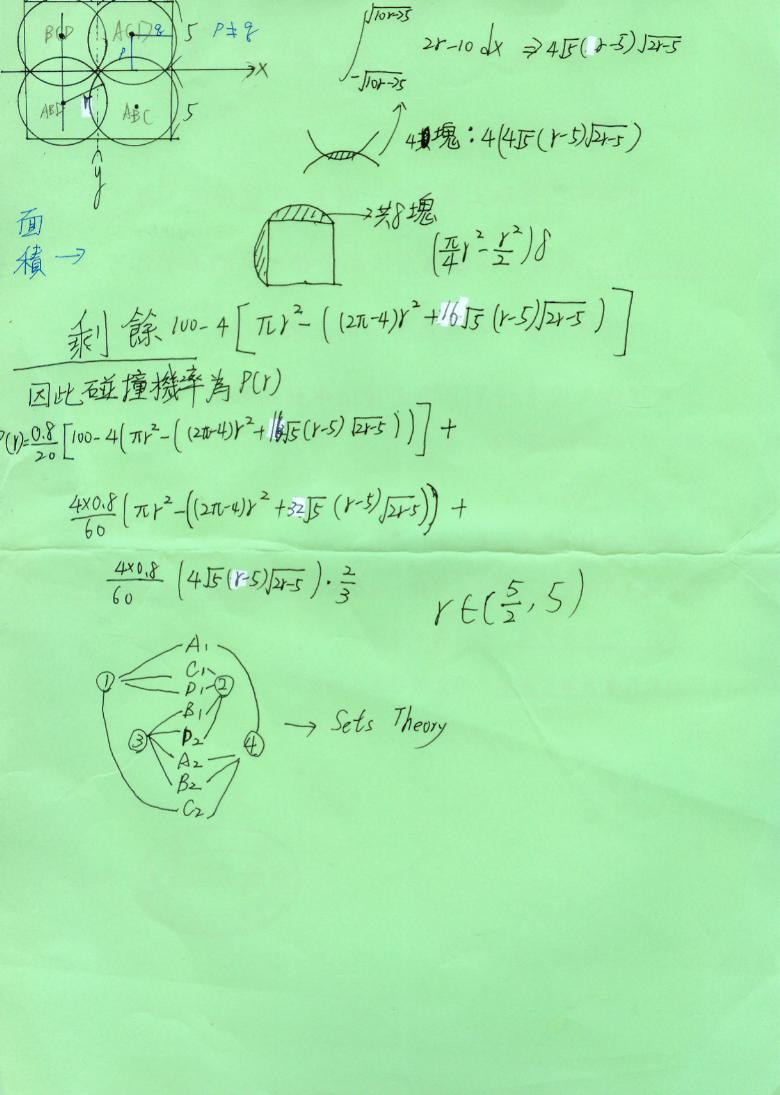 BCD ACD q 5 P≠q
P
x
ABD r ABC 5
y
∫_{-√10r-25}^{√10r-25} 2r-10 dx ⇒ 4√5(r-5)√2r-5
4塊：4(4√5(r-5)√2r-5)
面積 →
共8塊
(π/4 r² - r²/2)8
剩餘 100-4[πr²-((2π-4)r²+16√5(r-5)√2r-5)]
因此碰撞機率為P(r)
P(r)=0.8/20[100-4(πr²-((2π-4)r²+16√5(r-5)√2r-5))]+
4×0.8/60(πr²-((2π-4)r²+32√5(r-5)√2r-5))+
4×0.8/60(4√5(r-5)√2r-5)·2/3
r∈(5/2, 5)
A₁
C₁
① D₁ ②
B₁
③ D₂ ④ → Sets Theory
A₂
B₂
C₂